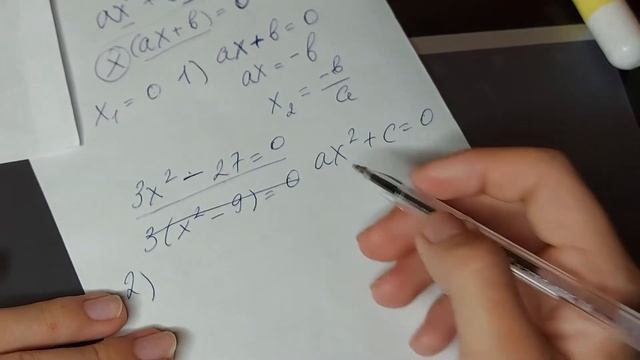 x(ax+b)=0
x₁=0 1) ax+b=0
ax=-b
x₂=-b/a
3x²-27=0 ax²+c=0
3(x²-9)=0
2)